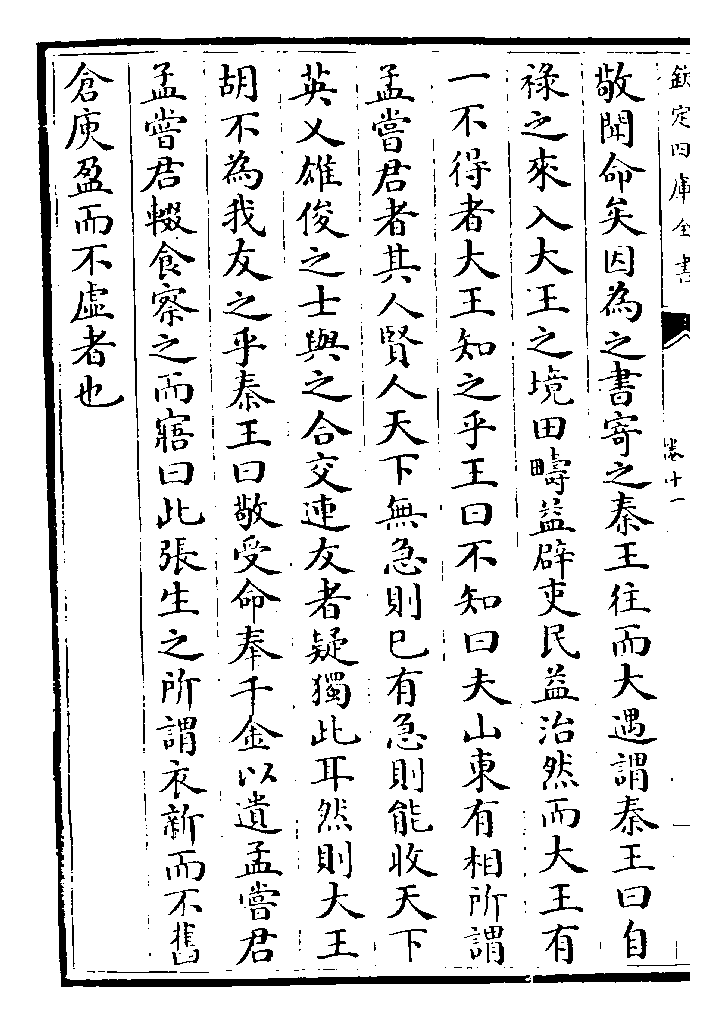 欽定四庫全書
卷十一
敬聞命矣因為之書寄之秦王往而大遇謂秦王曰自
祿之來入大王之境田疇益辟吏民益治然而大王有
一不得者大王知之乎王曰不知曰夫山東有相所謂
孟嘗君者其人賢人天下無急則已有急則能收天下
英乂雄俊之士與之合交連友者疑獨此耳然則大王
胡不為我友之乎秦王曰敬受命奉千金以遺孟嘗君
孟嘗君輟食察之而寤曰此張生之所謂衣新而不舊
倉庾盈而不虛者也